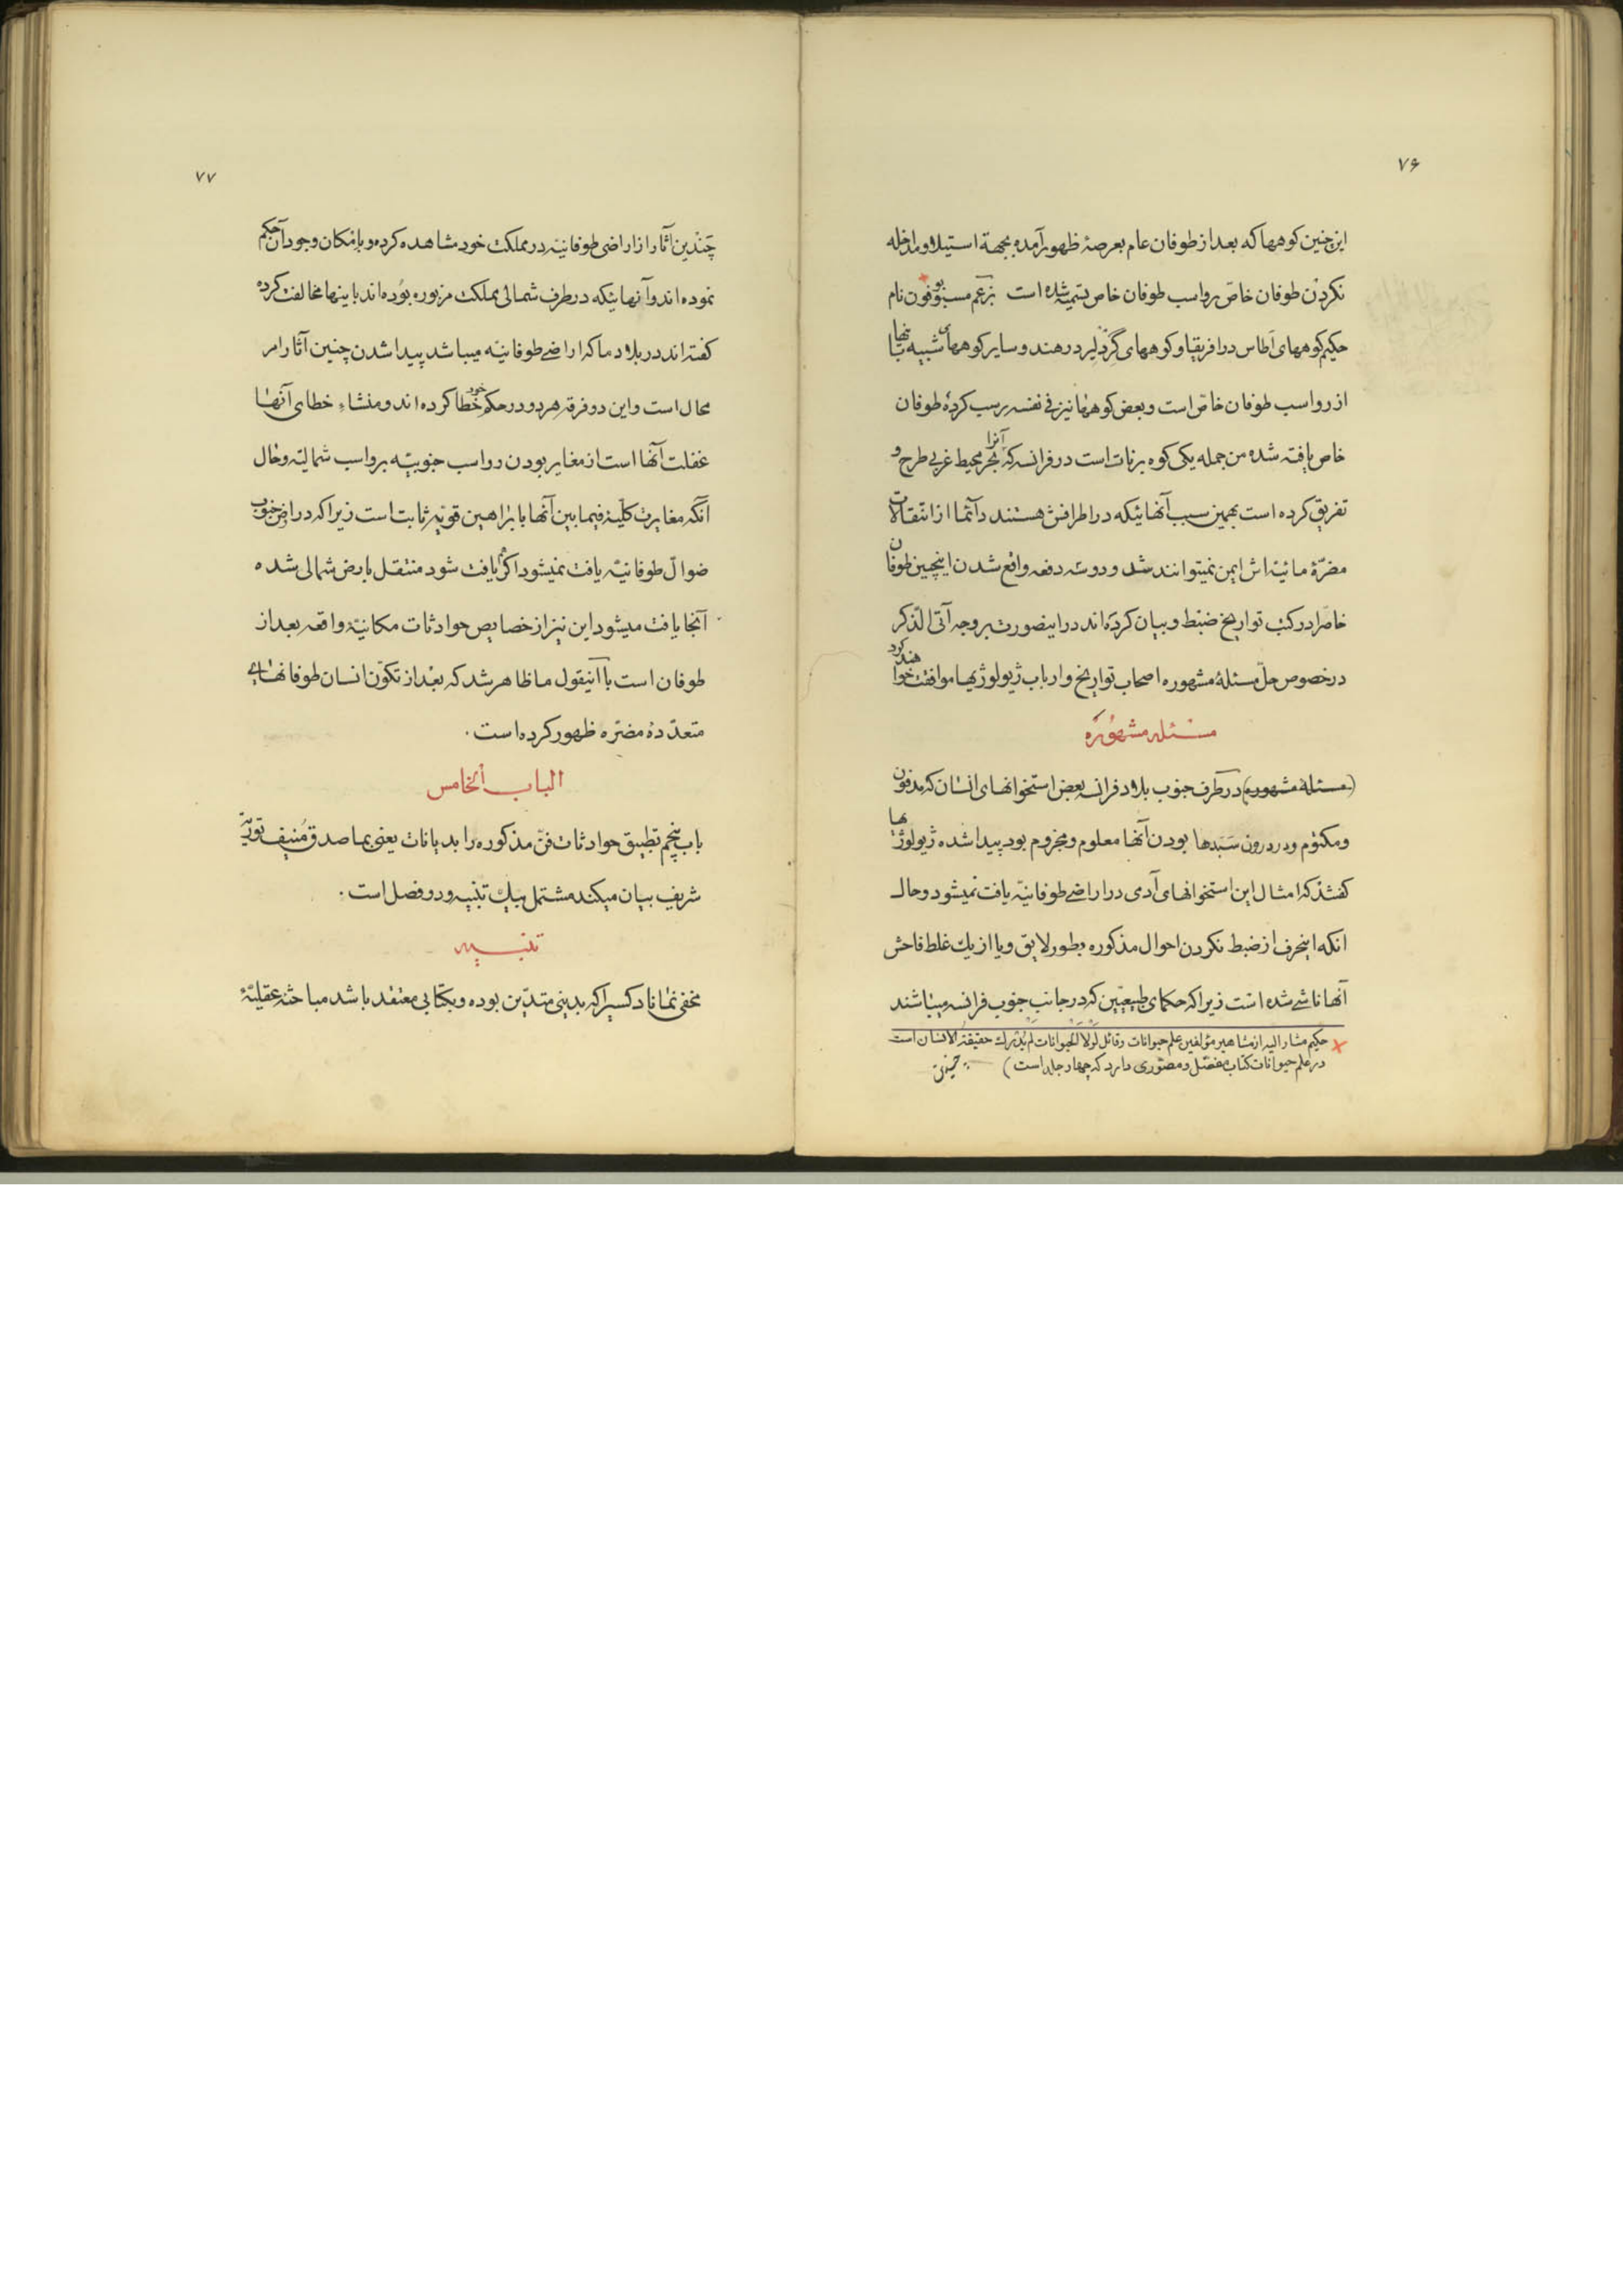 ۷۶
این چنین کوهها که بعد از طوفان عام بعرصهٔ ظهور برآمده بجهة استیلا و مداخله
نکردن طوفان خاصّ برواسب طوفان خاص تسمیه شده است بزعم مسیو بوفون نام
حکیم کوههای اطاس در افریقا و کوههای گردلیر در هند و سایر کوههای شبیه باینها
از رواسب طوفان خاصّ است و بعض کوهها نیز فی نفسه رسب کردهٔ طوفان
خاص یافته شده من جمله یکی کوه برنات است در فرانسه که آنرا بحر محیط غربی طرح و
تفریق کرده است بهمین سبب آنهائیکه در اطرافش هستند دائما از انتقالات
مضرّهٔ مائیه اش ایمن نمیتوانند شد و دو سه دفعه واقع شدن اینچنین طوفان
خاصرا در کتب تواریخ ضبط و بیان کرده اند در اینصورت بر وجه آتی الذکر
در خصوص حلّ مسئلهٔ مشهوره اصحاب تواریخ و ارباب ژیولوژیها موافقت خواهند کرد
مسئله مشهوره
(مسئلهٔ مشهوره) در طرف جنوب بلاد فرانسه بعض استخوانهای انسان که مدفون
و مکتوم و در درون سبدها بودن آنها معلوم و مجزوم بود پیدا شده ژیولوژیها
گفتند که امثال این استخوانهای آدمی در اراضی طوفانیّه یافت نمیشود و حال
انکه اینحرف از ضبط نکردن احوال مذکوره بطور لایق و یا از یك غلط فاحش
آنها ناشی شده است زیرا که حکمای طبیعیّین که در جانب جنوب فرانسه میباشند
حکیم مشار الیه از مشاهیر مؤلفین علم حیوانات و قائل لولا الحیوانات لم یدرك حقیقة الانسان است
در علم حیوانات کتاب مفصّل و مصوّری دارد که چهار جلد است)
۷۷
چندین آثار از اراضی طوفانیّه در مملکت خود مشاهده کرده و بامکان وجود آن حکم
نموده اند و آنهائیکه در طرف شمالی مملکت مزبوره بوده اند باینها مخالفت کرده
گفته اند در بلاد ما که اراضی طوفانیّه میباشد پیدا شدن چنین آثار امر
محال است و این دو فرقه هر دو در حکم خود خطا کرده اند و منشاء خطای آنها
غفلت آنها است از مغایر بودن رواسب جنوبیّه برواسب شمالیّه و حال
آنکه مغایرت کلّیهٔ فیما بین آنها با براهین قویّه ثابت است زیرا که در اراضی جنوب
ضوالّ طوفانیّه یافت نمیشود اگر یافت شود منتقل بارض شمالی شده
آنجا یافت میشود این نیز از خصایص حوادثات مکانیّهٔ واقعه بعد از
طوفان است با اینقول ما ظاهر شد که بعد از تکوّن انسان طوفانهای
متعدّدهٔ مضرّه ظهور کرده است.
الباب الخامس
باب پنجم تطبیق حوادثات فنّ مذکوره را بدیانات یعنی بما صدق منیف توریة
شریف بیان میکند مشتمل بیك تنبیه و دو فصل است.
تنبیه
مخفی نماناد کسیرا که بدینی متدیّن بوده و بکتابی معتقد باشد مباحثهٔ عقلیّهٔ